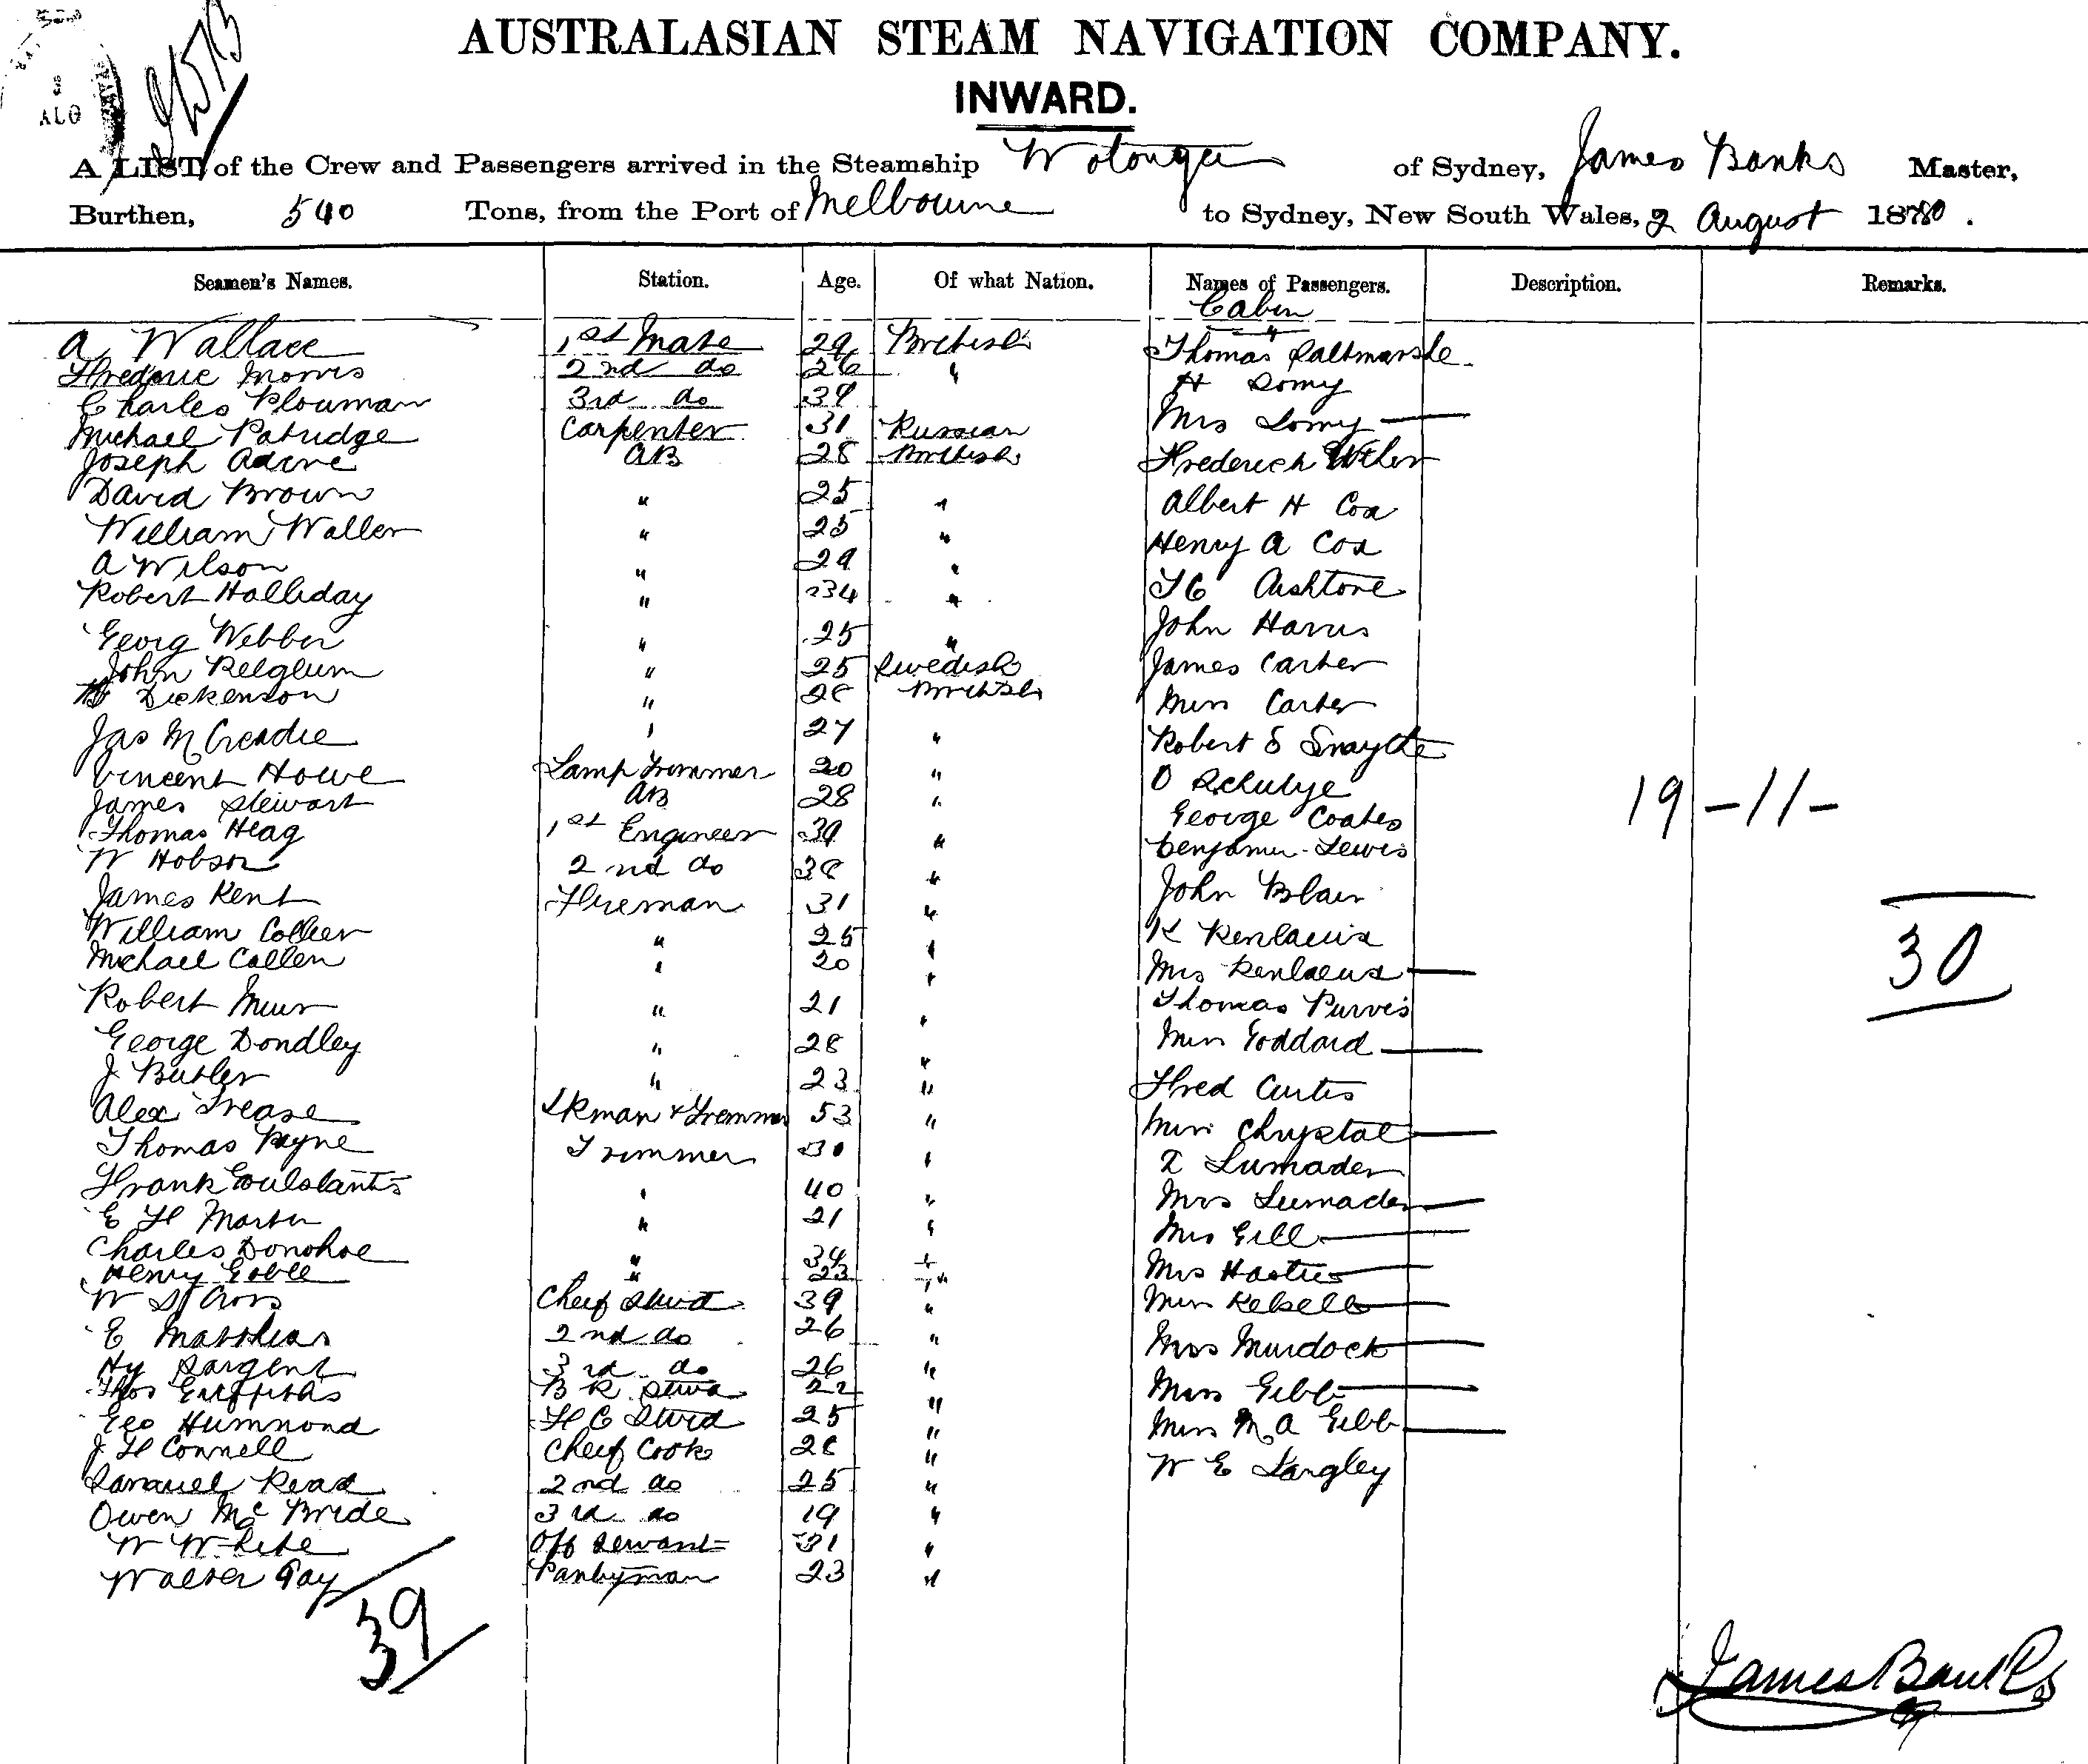 AUSTRALASIAN STEAM NAVIGATION COMPANY.
INWARD.
A LIST of the Crew and Passengers arrived in the Steamship Wotonga of Sydney, James Banks Master,
Burthen, 540 Tons, from the Port of Melbourne to Sydney, New South Wales, 2 August 1880.
Seamen's Names. Station. Age. Of what Nation. Names of Passengers. Description. Remarks.
Cabin
A Wallace 1st Mate 29 British Thomas Saltmarshe
Frederic Morris 2nd do 26 " H Lomy
Charles Plowman 3rd do 39 Mrs Lomy —
Michael Patridge Carpenter 31 Russian
Joseph Adine AB 28 British Frederich
David Brown " 25 " Albert H Cox
William Waller " 25 " Henry A Cox
A Wilson " 29 " Ashtone
Robert Halliday " 34 " John Harris
Georg Webber " 25 "
John Relglum " 25 Swedish James Carter
Dickenson " 28 British Miss Carter
Jas McCreadie " 27 " Robert S Smaythe
Vincent Howe Lamp Trimmer 20 " O Schulye
James Stewart AB 28 " George Coates
Thomas Heag 1st Engineer 39 " Benjamin Lewis
19 -11-
W Hobson 2nd do 38 "
James Kent Fireman 31 " John Blair
William Collier " 25 " K
Michael Callen " 20 " Mrs —
30
Robert Muir " 21 " Thomas Purves
George Dondley " 28 " Miss Goddard —
J Butler " 23 " Fred Curtis
Alex Trease & Tremmer 53 " Miss Chrystal —
Thomas Payne Trimmer 30 " Lumader
Frank " 40 " Mrs Lumader —
E H Martin " 21 " Mrs Gill —
Charles Donohoe " 34 " Mrs Hasties —
Henry Goble " 23 "
W St Cross Cheif Stwd 39 " Miss Kebell —
E Matthias 2nd do 26 " Mrs Murdock —
Hy Sargent 3rd do 26 "
Thos Griffiths B R Stwd 22 Miss Gibb —
Geo Hummond F C Stwd 25 " Miss M A Gibb —
J H Connell Cheif Cook 28 " W E Langley
Samuel Read 2nd do 25 "
Owen McBride 3rd do 19 "
W White Off Servant 31 "
Walter Gay Pantyman 23 "
39
James Banks